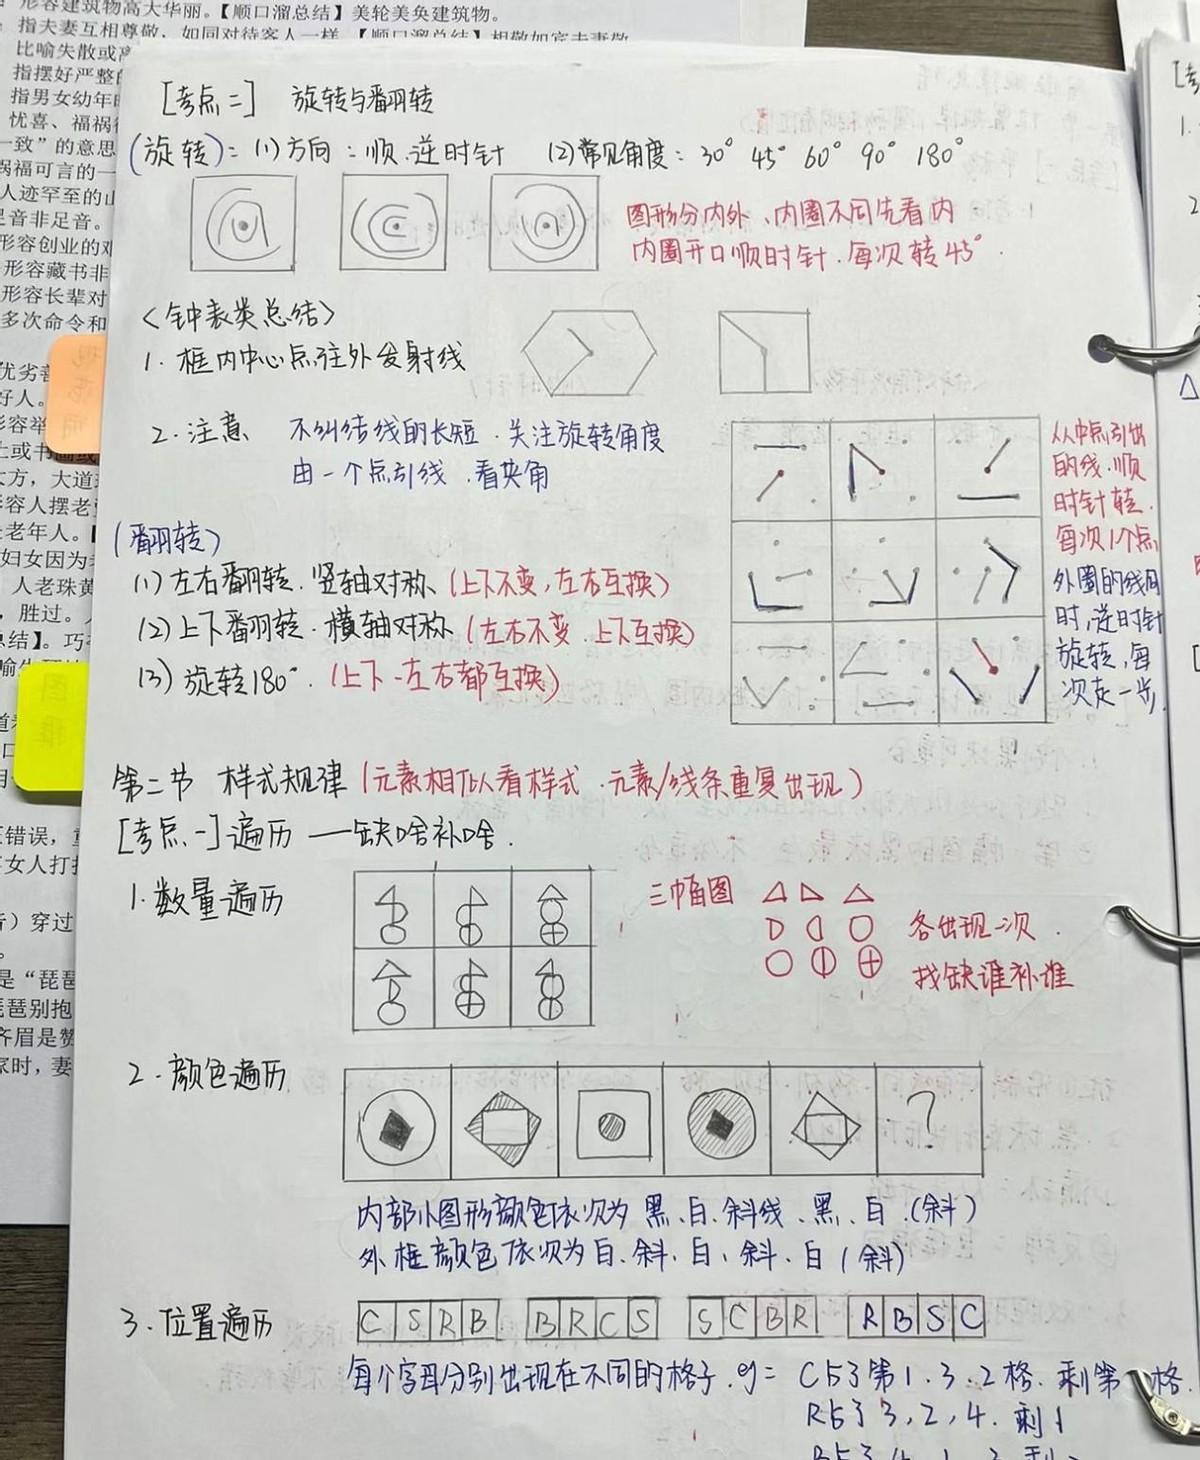 形容建筑物高大华丽。【顺口溜总结】美轮美奂建筑物。
指夫妻互相尊敬，如同对待客人一样。【顺口溜总结】相敬如宾夫妻敬
比喻失散或
指摆好严整的
指男女幼年时
忧喜、福祸
一致”的意思
祸福可言的一
人迹罕至的山
足音非足音。
形容创业的艰
形容藏书非
形容长辈对
多次命令和
优劣善
好人。
形容举
士或书画或
大方，大道
形容人摆老
老年人。
妇女因为
人老珠黄
，胜过。
总结】。巧
[考点二] 旋转与翻转
(旋转)：(1)方向：顺.逆时针 (2)常见角度：30° 45° 60° 90° 180°
图形分内外、内圈不同先看内
内圈开口顺时针.每次转45°.
<钟表类总结>
1.框内中心点往外发射线
2.注意 不纠结线的长短.关注旋转角度
由一个点引线.看夹角
从中点引出
的线.顺
时针转.
每次1个点
外圈的线同
时,逆时针
旋转,每
次走一步.
(翻转)
(1)左右翻转.竖轴对称(上下不变,左右互换)
(2)上下翻转.横轴对称(左右不变.上下互换)
(3)旋转180°.(上下-左右都互换)
第二节 样式规律(元素相似看样式.元素/线条重复出现)
[考点一]遍历 —缺啥补啥.
1.数量遍历
三幅图
各出现一次.
找缺谁补谁
2.颜色遍历
?
内部小图形颜色依次为 黑、白、斜线、黑、白.(斜)
外框颜色依次为白、斜、白、斜、白(斜)
3.位置遍历
C S R B B R C S S C B R R B S C
每个字母分别出现在不同的格子.eg= C占了第1、3、2格.剩第 格.
R占了3,2,4.剩1
错误，
女人打
）穿过
是“琵琶
琵琶别抱
齐眉是赞
家时，妻